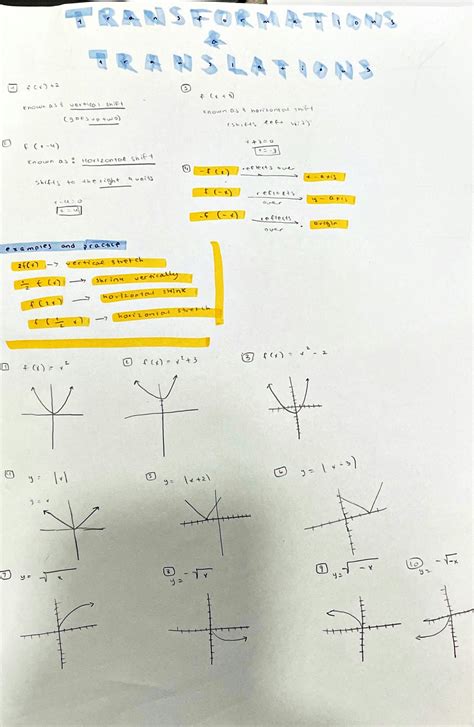 TRANSFORMATIONS
&
TRANSLATIONS
1 f(x)+2
known as: vertical shift
(goes up 2 units)
2 f(x-4)
known as: Horizontal shift
shifts to the right 4 units
x-4=0
x=4
3 f(x+3)
known as: horizontal shift
(shifts left 3 units)
x+3=0
x=-3
4 -f(x) reflects over x-axis
f(-x) reflects over y-axis
-f(-x) reflects over origin
examples and practice
2f(x) → vertical stretch
1/2 f(x) → shrink vertically
f(2x) → horizontal shink
f(1/2 x) → horizontal stretch
1 f(x)=x²
2 f(x)=x²+3
3 f(x)=x²-2
4 y=|x|
5 y=|x+2|
6 y=|x-3|
7 y=√x
8 y=-√x
9 y=√-x
10 y=-√-x